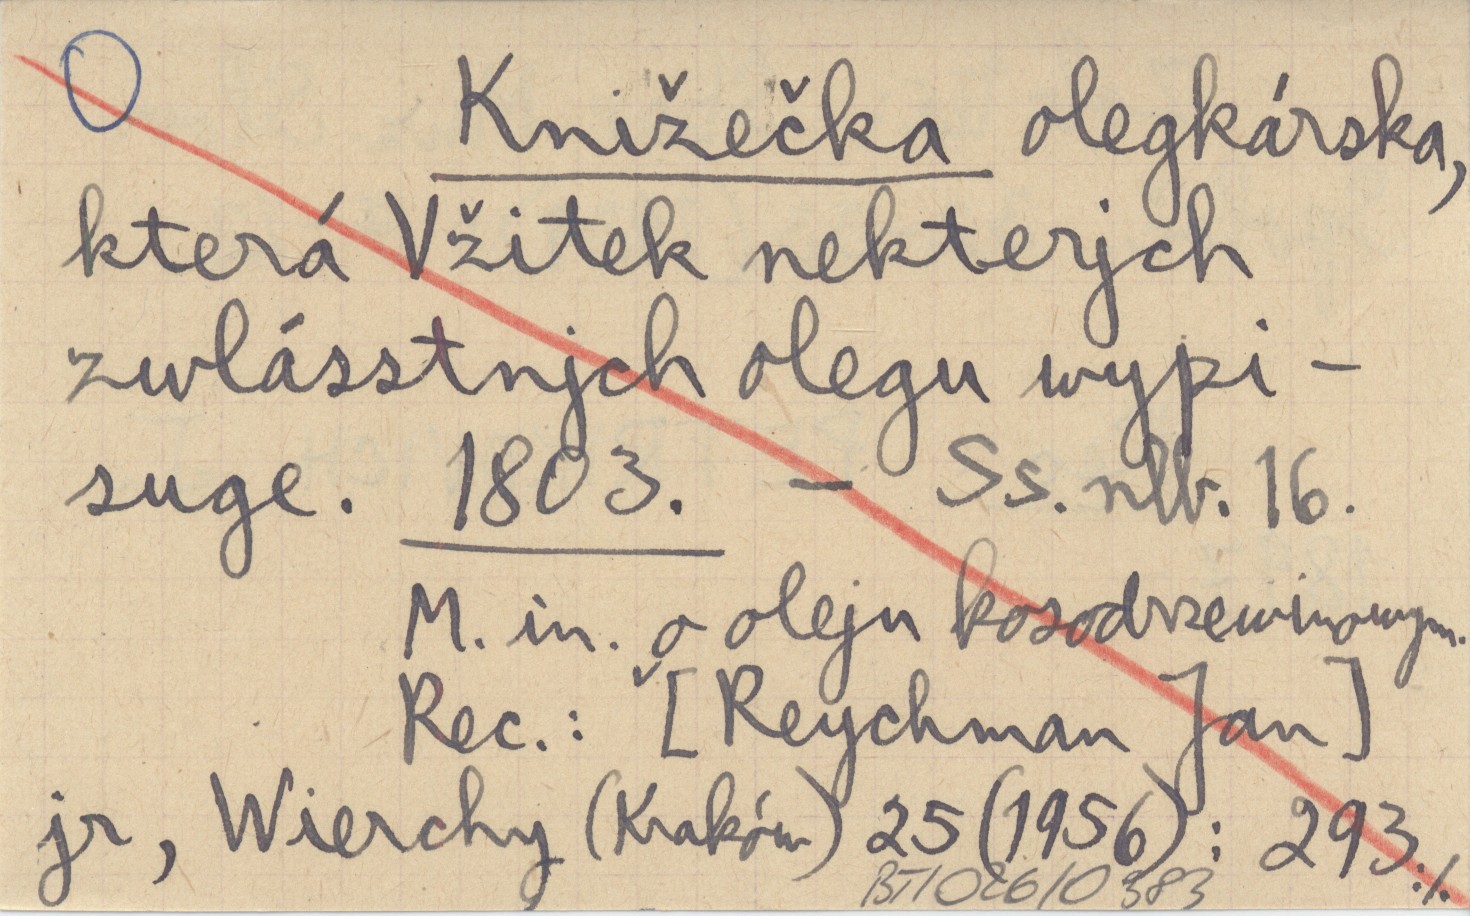 Knižečka olegkárska,
která Vžitek nekterjch
zwlásstnjch olegu wypi-
suge. 1803. - Ss. nlb. 16.
M. in. o oleju kosodrzewinowym.
Rec.: [Reychman Jan]
jr, Wierchy (Kraków) 25 (1956): 293./.
BTI 026/0383